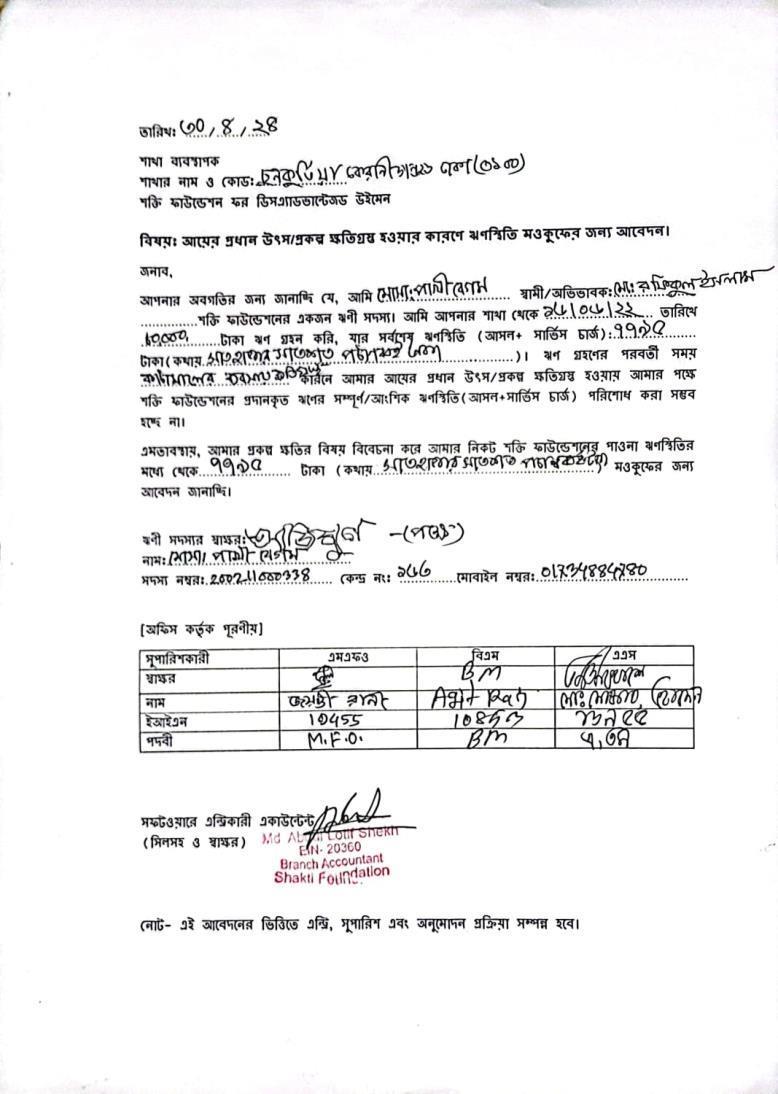 তারিখঃ ৩০/৪/২৪
শাখা ব্যবস্থাপক
শাখার নাম ও কোডঃ চুনকুটিয়া কেরানীগঞ্জ (৩১০০)
শক্তি ফাউন্ডেশন ফর ডিসএ্যাডভান্টেজড উইমেন
বিষয়ঃ আয়ের প্রধান উৎস/প্রকল্প ক্ষতিগ্রস্থ হওয়ার কারণে ঋণস্থিতি মওকুফের জন্য আবেদন।
জনাব,
আপনার অবগতির জন্য জানাচ্ছি যে, আমি মোসাঃ পাখী বেগম স্বামী/অভিভাবকঃ মোঃ রফিকুল ইসলাম
শক্তি ফাউন্ডেশনের একজন ঋণী সদস্য। আমি আপনার শাখা থেকে তারিখে
টাকা ঋণ গ্রহন করি, যার সর্বশেষ ঋণস্থিতি (আসল+ সার্ভিস চার্জ): ৭৭৯৫
টাকা (কথায় সাতহাজার সাতশত পচানব্বই )। ঋণ গ্রহণের পরবর্তী সময়
কারনে আমার আয়ের প্রধান উৎস/প্রকল্প ক্ষতিগ্রস্থ হওয়ায় আমার পক্ষে
শক্তি ফাউন্ডেশনের প্রদানকৃত ঋণের সম্পূর্ণ/আংশিক ঋণস্থিতি (আসল+সার্ভিস চার্জ) পরিশোধ করা সম্ভব
হচ্ছে না।
এমতাবস্থায়, আমার প্রকল্প ক্ষতির বিষয় বিবেচনা করে আমার নিকট শক্তি ফাউন্ডেশনের পাওনা ঋণস্থিতির
মধ্যে থেকে ৭৭৯৫ টাকা (কথায় সাতহাজার সাতশত পচানব্বই) মওকুফের জন্য
আবেদন জানাচ্ছি।
ঋণী সদস্যর স্বাক্ষরঃ
নামঃ মোসাঃ পাখী বেগম
সদস্য নম্বরঃ 200211000338 কেন্দ্র নং: মোবাইল নম্বরঃ
[অফিস কর্তৃক পূরণীয়]
সুপারিশকারী এমএফও বিএম এএস
স্বাক্ষর BM
নাম জয়ন্তী রানী
ইআইএন 10455
পদবী M.F.O. BM
সফটওয়ারে এন্ট্রিকারী একাউন্টেন্ট
(সিলসহ ও স্বাক্ষর) Md Abdul Lotif Shekh
EIN- 20360
Branch Accountant
Shakti Foundation
নোট- এই আবেদনের ভিত্তিতে এন্ট্রি, সুপারিশ এবং অনুমোদন প্রক্রিয়া সম্পন্ন হবে।